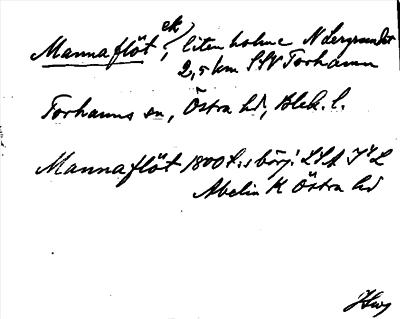 Mannaflöt, ek liten holme N Lergrundet
2,5 km SSV Torhamn
Torhamns sn, Östra hd, Blek. l.
Mannaflöt 1800 t.s börj. LSA
Abelin K Östra hd